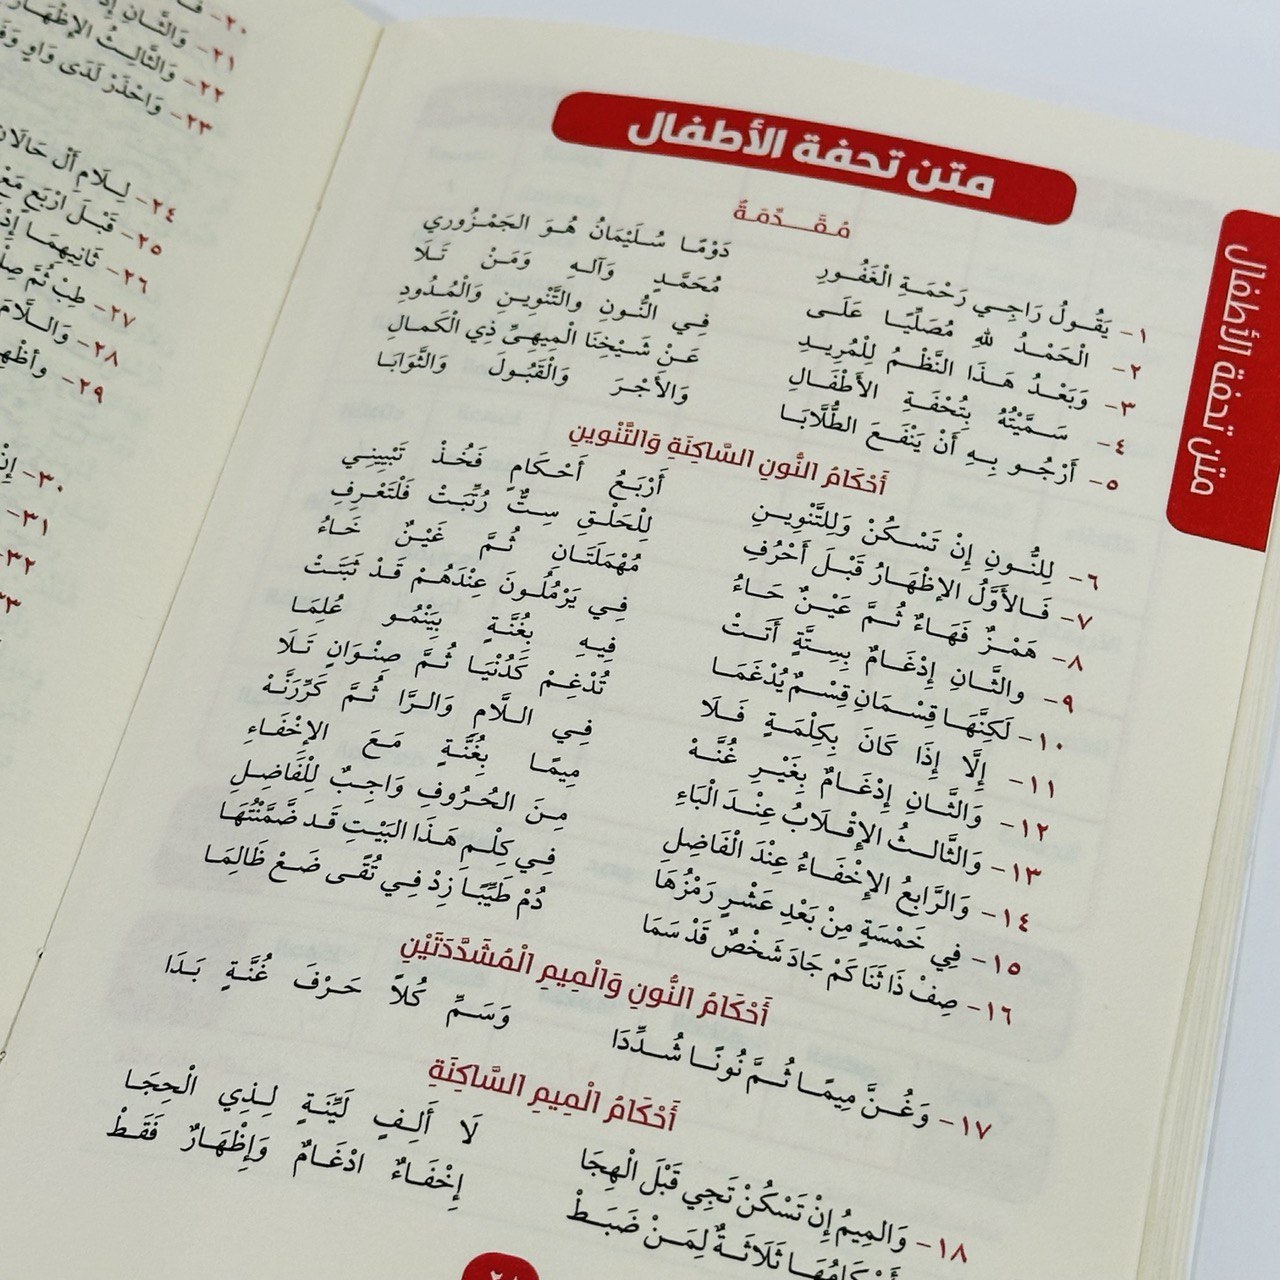 متن تحفة الأطفال
مُقَدِّمَةٌ
١- يَقُولُ رَاجِي رَحْمَةِ الْغَفُورِ دَوْمًا سُلَيْمَانُ هُوَ الجَمْزُورِي
٢- الْحَمْدُ لله مُصَلِّيًا عَلَى مُحَمَّدٍ وَآلهِ وَمَنْ تَلَا
٣- وَبَعْدُ هَذَا النَّظْمُ لِلْمُرِيدِ فِي النُّونِ والتَّنْوِينِ وَالْمُدُودِ
٤- سَمَّيْتُهُ بِتُحْفَةِ الأَطْفَالِ عَنْ شَيْخِنَا الْمِيهِىِّ ذِي الْكَمالِ
٥- أَرْجُو بِهِ أَنْ يَنْفَعَ الطُّلَّابَا وَالأَجْرَ وَالْقَبُولَ وَالثَّوَابَا
أَحْكَامُ النُّونِ السَّاكِنَةِ وَالتَّنْوِينِ
٦- لِلنُّونِ إِنْ تَسْكُنْ وَلِلتَّنْوِينِ أَرْبَعُ أَحْكَامٍ فَخُذْ تَبْيِينِي
٧- فَالأَوَّلُ الإظْهَارُ قَبْلَ أَحْرُفِ لِلْحَلْقِ سِتٌّ رُتِّبَتْ فَلْتَعْرِفِ
٨- هَمْزٌ فَهَاءٌ ثُمَّ عَيْنٌ حَاءُ مُهْمَلَتَانِ ثُمَّ غَيْنٌ خَاءُ
٩- والثَّانِ إِدْغَامٌ بِسِتَّةٍ أَتَتْ فِي يَرْمُلُونَ عِنْدَهُمْ قَدْ ثَبَتَتْ
١٠- لَكِنَّهَا قِسْمَانِ قِسْمٌ يُدْغَمَا فِيهِ بِغُنَّةٍ بِيَنْمُو عُلِمَا
١١- إِلَّا إِذَا كَانَ بِكِلْمَةٍ فَلَا تُدْغِمْ كَدُنْيَا ثُمَّ صِنْوَانٍ تَلَا
١٢- وَالثَّانِ إِدْغَامٌ بِغَيْرِ غُنَّهْ فِي اللَّامِ وَالرَّا ثُمَّ كَرِّرَنَّهْ
١٣- وَالثَّالثُ الإِقْلَابُ عِنْدَ الْبَاءِ مِيمًا بِغُنَّةٍ مَعَ الإِخْفَاءِ
١٤- وَالرَّابِعُ الإِخْفَاءُ عِنْدَ الْفَاضِلِ مِنَ الحُرُوفِ وَاجِبٌ لِلْفَاضِلِ
١٥- فِي خَمْسَةٍ مِنْ بَعْدِ عَشْرٍ رَمْزُهَا فِي كِلْمِ هَذَا البَيْتِ قَد ضَّمَّنْتُهَا
١٦- صِفْ ذَا ثَنَا كَمْ جَادَ شَخْصٌ قَدْ سَمَا دُمْ طَيِّبًا زِدْ فِي تُقًى ضَعْ ظَالِمَا
أَحْكَامُ النُّونِ وَالْمِيمِ الْمُشَدَّدَتَيْنِ
١٧- وَغُنَّ مِيمًا ثُمَّ نُونًا شُدِّدَا وَسَمِّ كُلاًّ حَرْفَ غُنَّةٍ بَدَا
أَحْكَامُ الْمِيمِ السَّاكِنَةِ
١٨- وَالمِيمُ إِنْ تَسْكُنْ تَجِي قَبْلَ الْهِجَا لَا أَلِفٍ لَيِّنَةٍ لِذِي الْحِجَا
أَحْكَامُهَا ثَلَاثَةٌ لِمَنْ ضَبَطْ إِخْفَاءٌ ادْغَامٌ وَإِظْهَارٌ فَقَطْ
متن تحفة الأطفال
٢٠-
٢١- وَالثَّانِ
٢٢- وَالثَّالِثُ الإِظْهَارُ
٢٣- وَاحْذَرْ لَدَى وَاوٍ
٢٤- لِلَامِ أَلْ حَالَانِ
٢٥- قَبْلَ ارْبَعٍ
٢٦- ثَانِيهِمَا
٢٧- طِبْ ثُمَّ
٢٨- وَاللَّامَ
٢٩-
٣٠-
٣١-
٣٢-